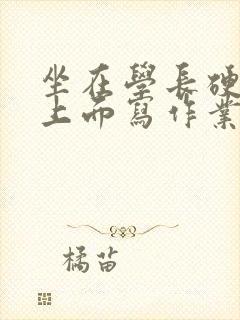 坐在學長硬
上面寫作業
橘苗